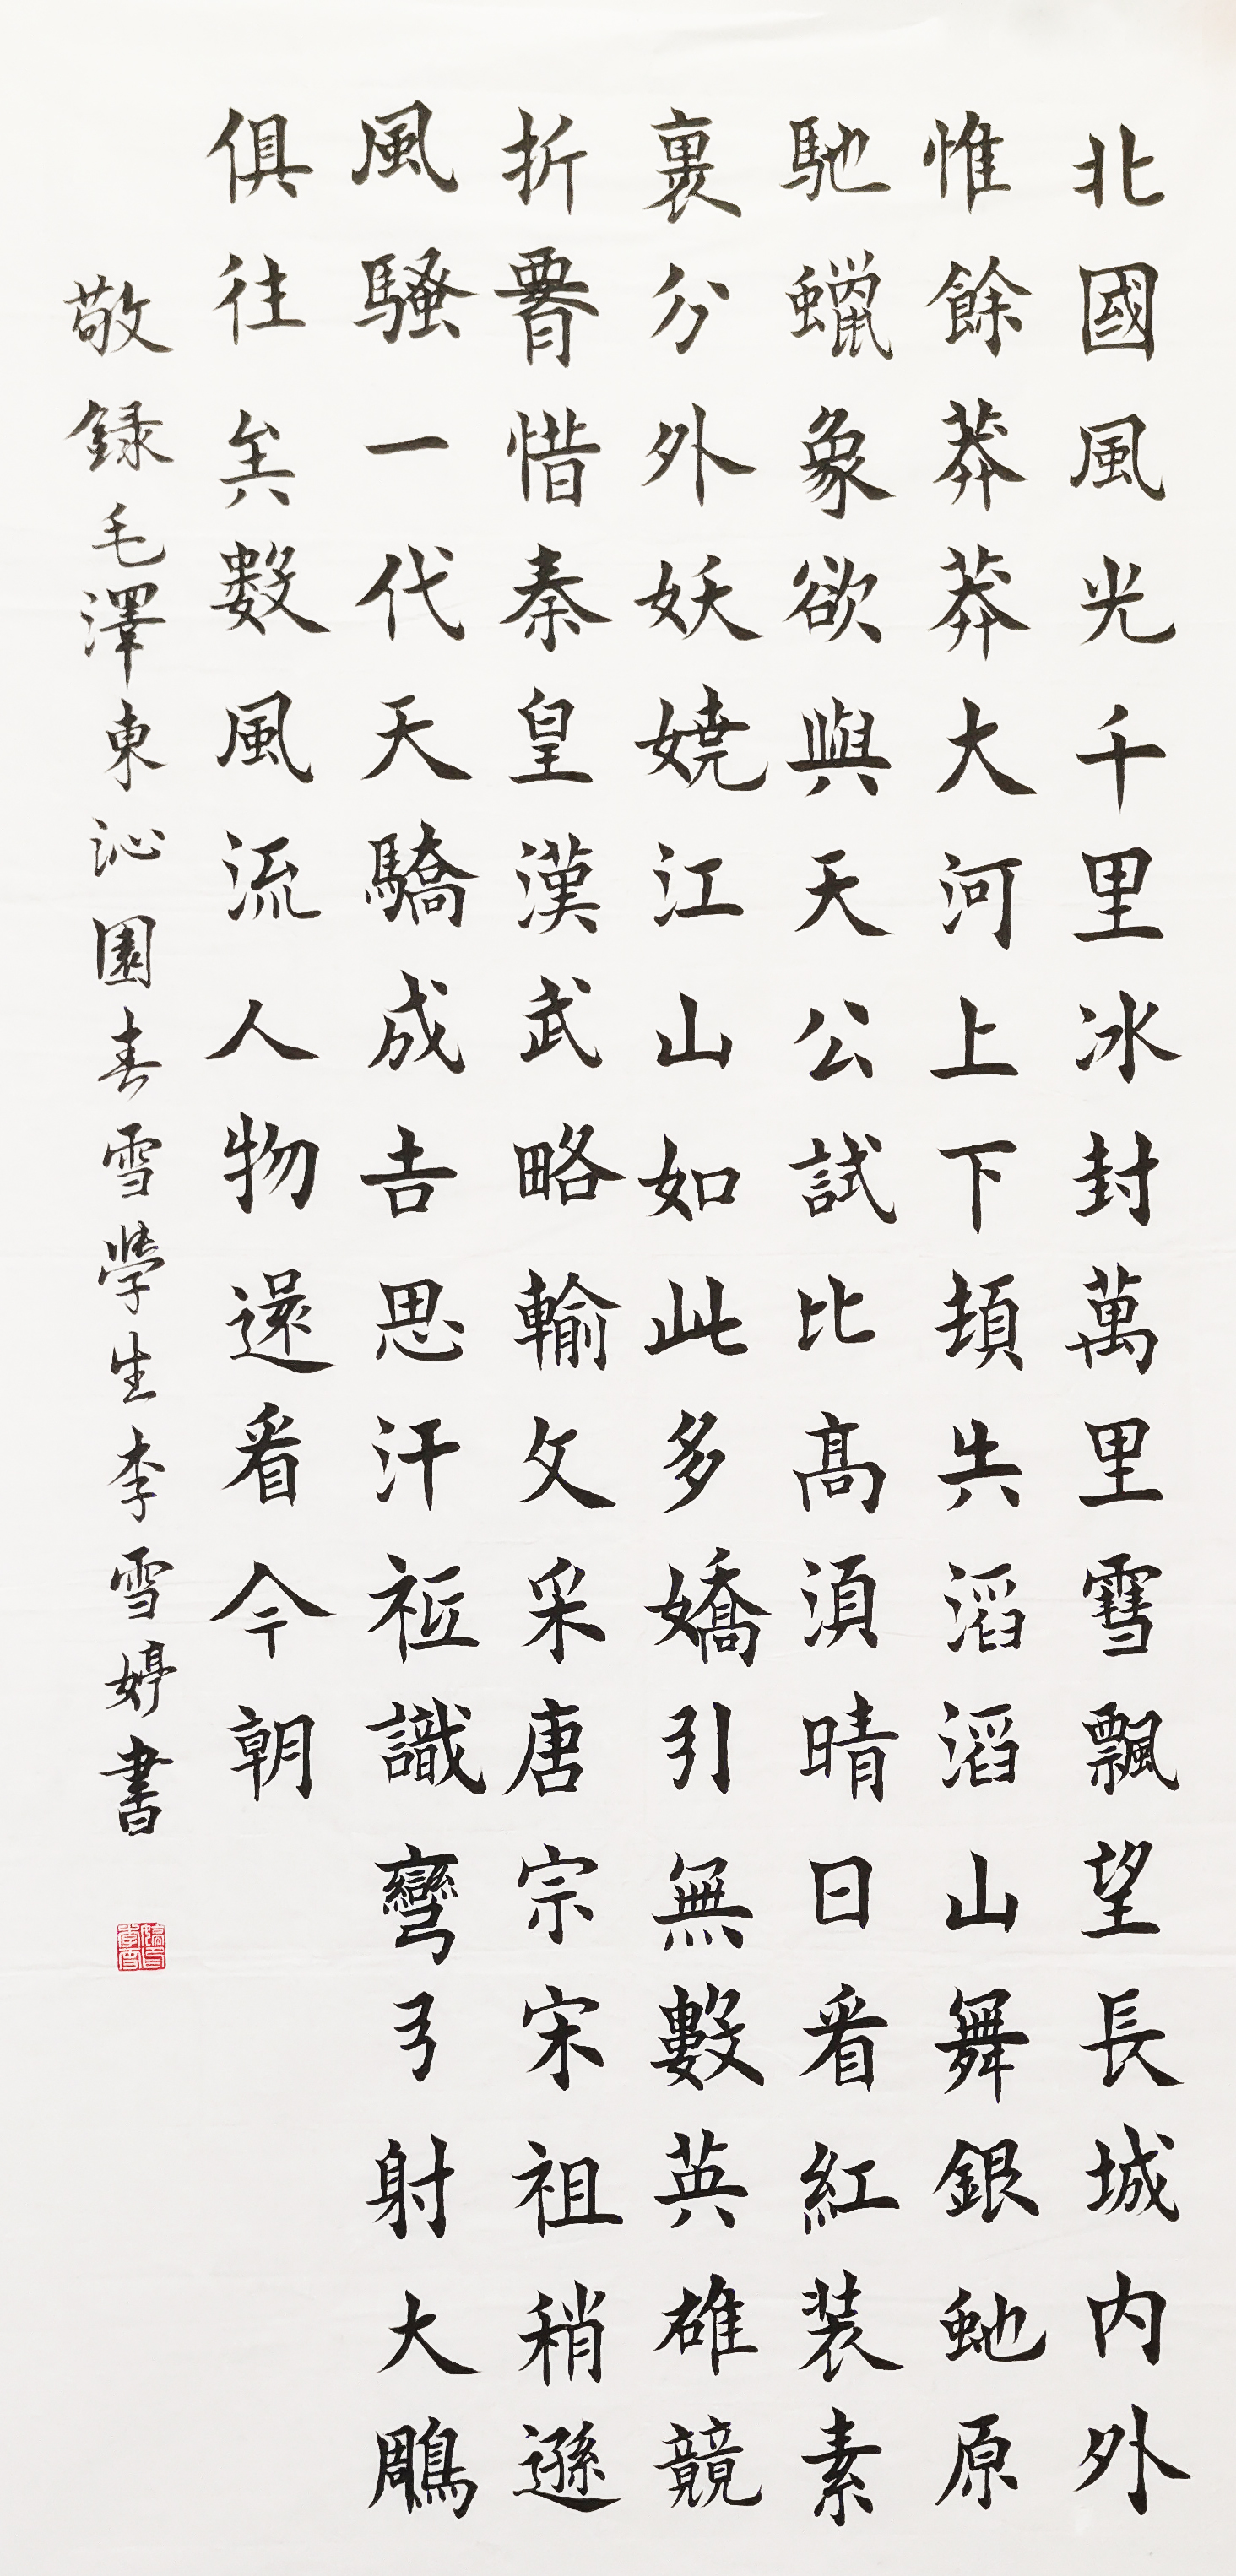 北國風光千里冰封萬里雪飄望長城内外
惟餘莽莽大河上下頓失滔滔山舞銀虵原
馳蠟象欲與天公試比高須晴日看紅装素
裹分外妖嬈江山如此多嬌引無數英雄競
折腰惜秦皇漢武略輸文采唐宗宋祖稍遜
風騷一代天驕成吉思汗祗識彎弓射大鵰
俱往矣數風流人物還看今朝
敬録毛澤東沁園春雪學生李雪婷書